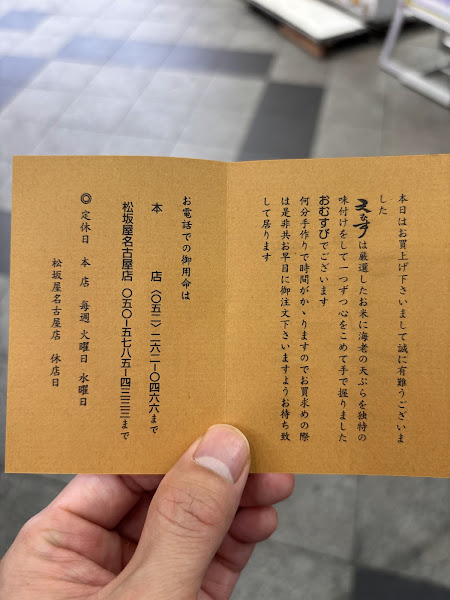 本日はお買上げ下さいまして誠に有難うございま
した
天むすは厳選したお米に海老の天ぷらを独特の
味付けをして一つずつ心をこめて手で握りました
おむすびでございます
何分手作りで時間がかゝりますのでお買求めの際
は是非共お早目に御注文下さいますようお待ち致
して居ります
お電話での御用命は
本　　店 (〇五二)二六二ー〇四六六まで
松坂屋名古屋店 〇五〇ー五七八五ー四三三三まで
◎ 定休日 本 店 毎週 火曜日 水曜日
松坂屋名古屋店 休店日